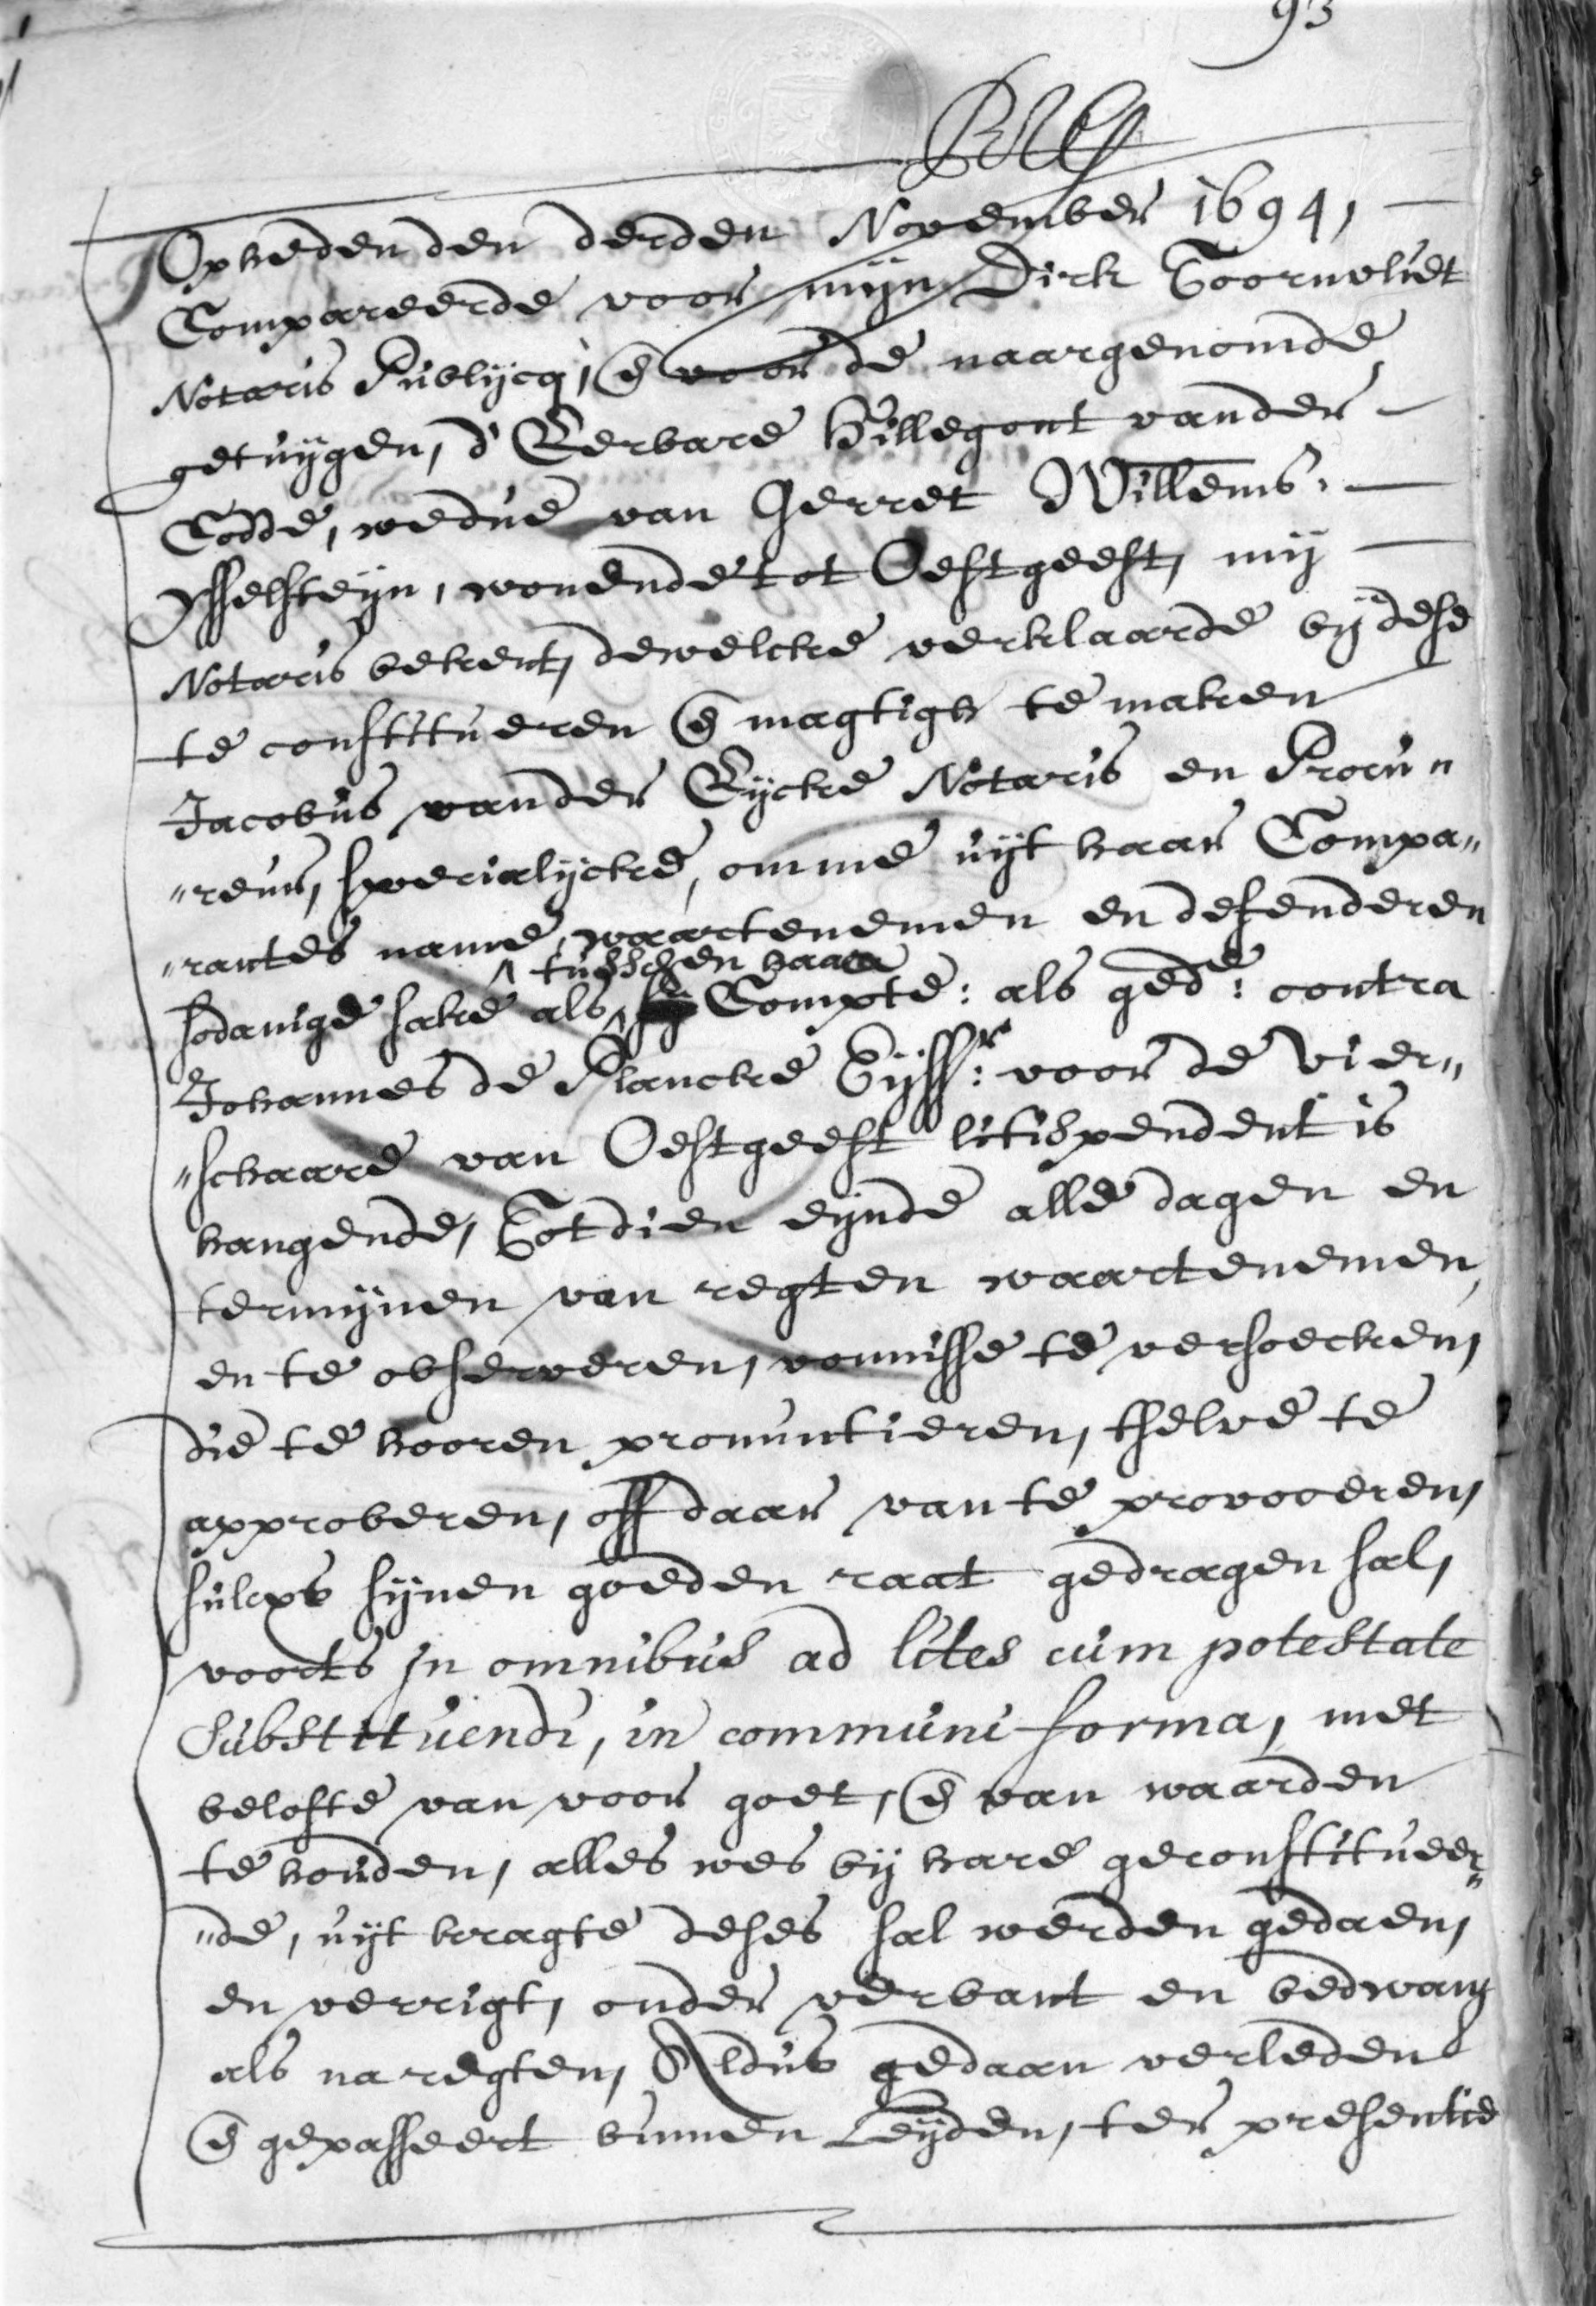 93
Op heden den derden November 1694,
Compareerde voor mijn Dirk Toornvliet
Notaris Publijcq, en voor de naargenomde
getuijgen, d' Eerbare Hillegont vander
Codde, wedue van Gerret Willems.
Ysselsteijn, wonende tot Oestgeest, mij
Notaris bekent, dewelcke verklaarde bij dese
te constitueren en magtigh te maken
Jacobus vander Eijcke Notaris en Procu"
"reur, specialijcke, omme uijt haar Compa"
"rantes name, waartenemen en defenderen
tusschen haar
sodanige sake als Compte: als gede: contra
Johannes de Plancke Eijssr: voor de Vier"
"schaare van Oestgeest litispendent is
hangende, Tot dien eijnde alle dagen en
termijnen van regten waartenemen,
en te observeren, vonnisse te versoecken,
die te hooren pronuntieren, tselve te
approberen, off daar van te provoceren,
sulcx sijnen goeden raat gedragen sal,
voorts in omnibus ad lites cum potestate
substituendi, in communi forma, met
belofte van voor goet, en van waarden
te houden, alles wes bij hare geconstitueer"
"de, uijt kragte deses sal werden gedaen,
en verrigt, onder verbant en bedwang
als na regten, Aldus gedaan verleden
en gepasseert binnen Leijden, ter presentie